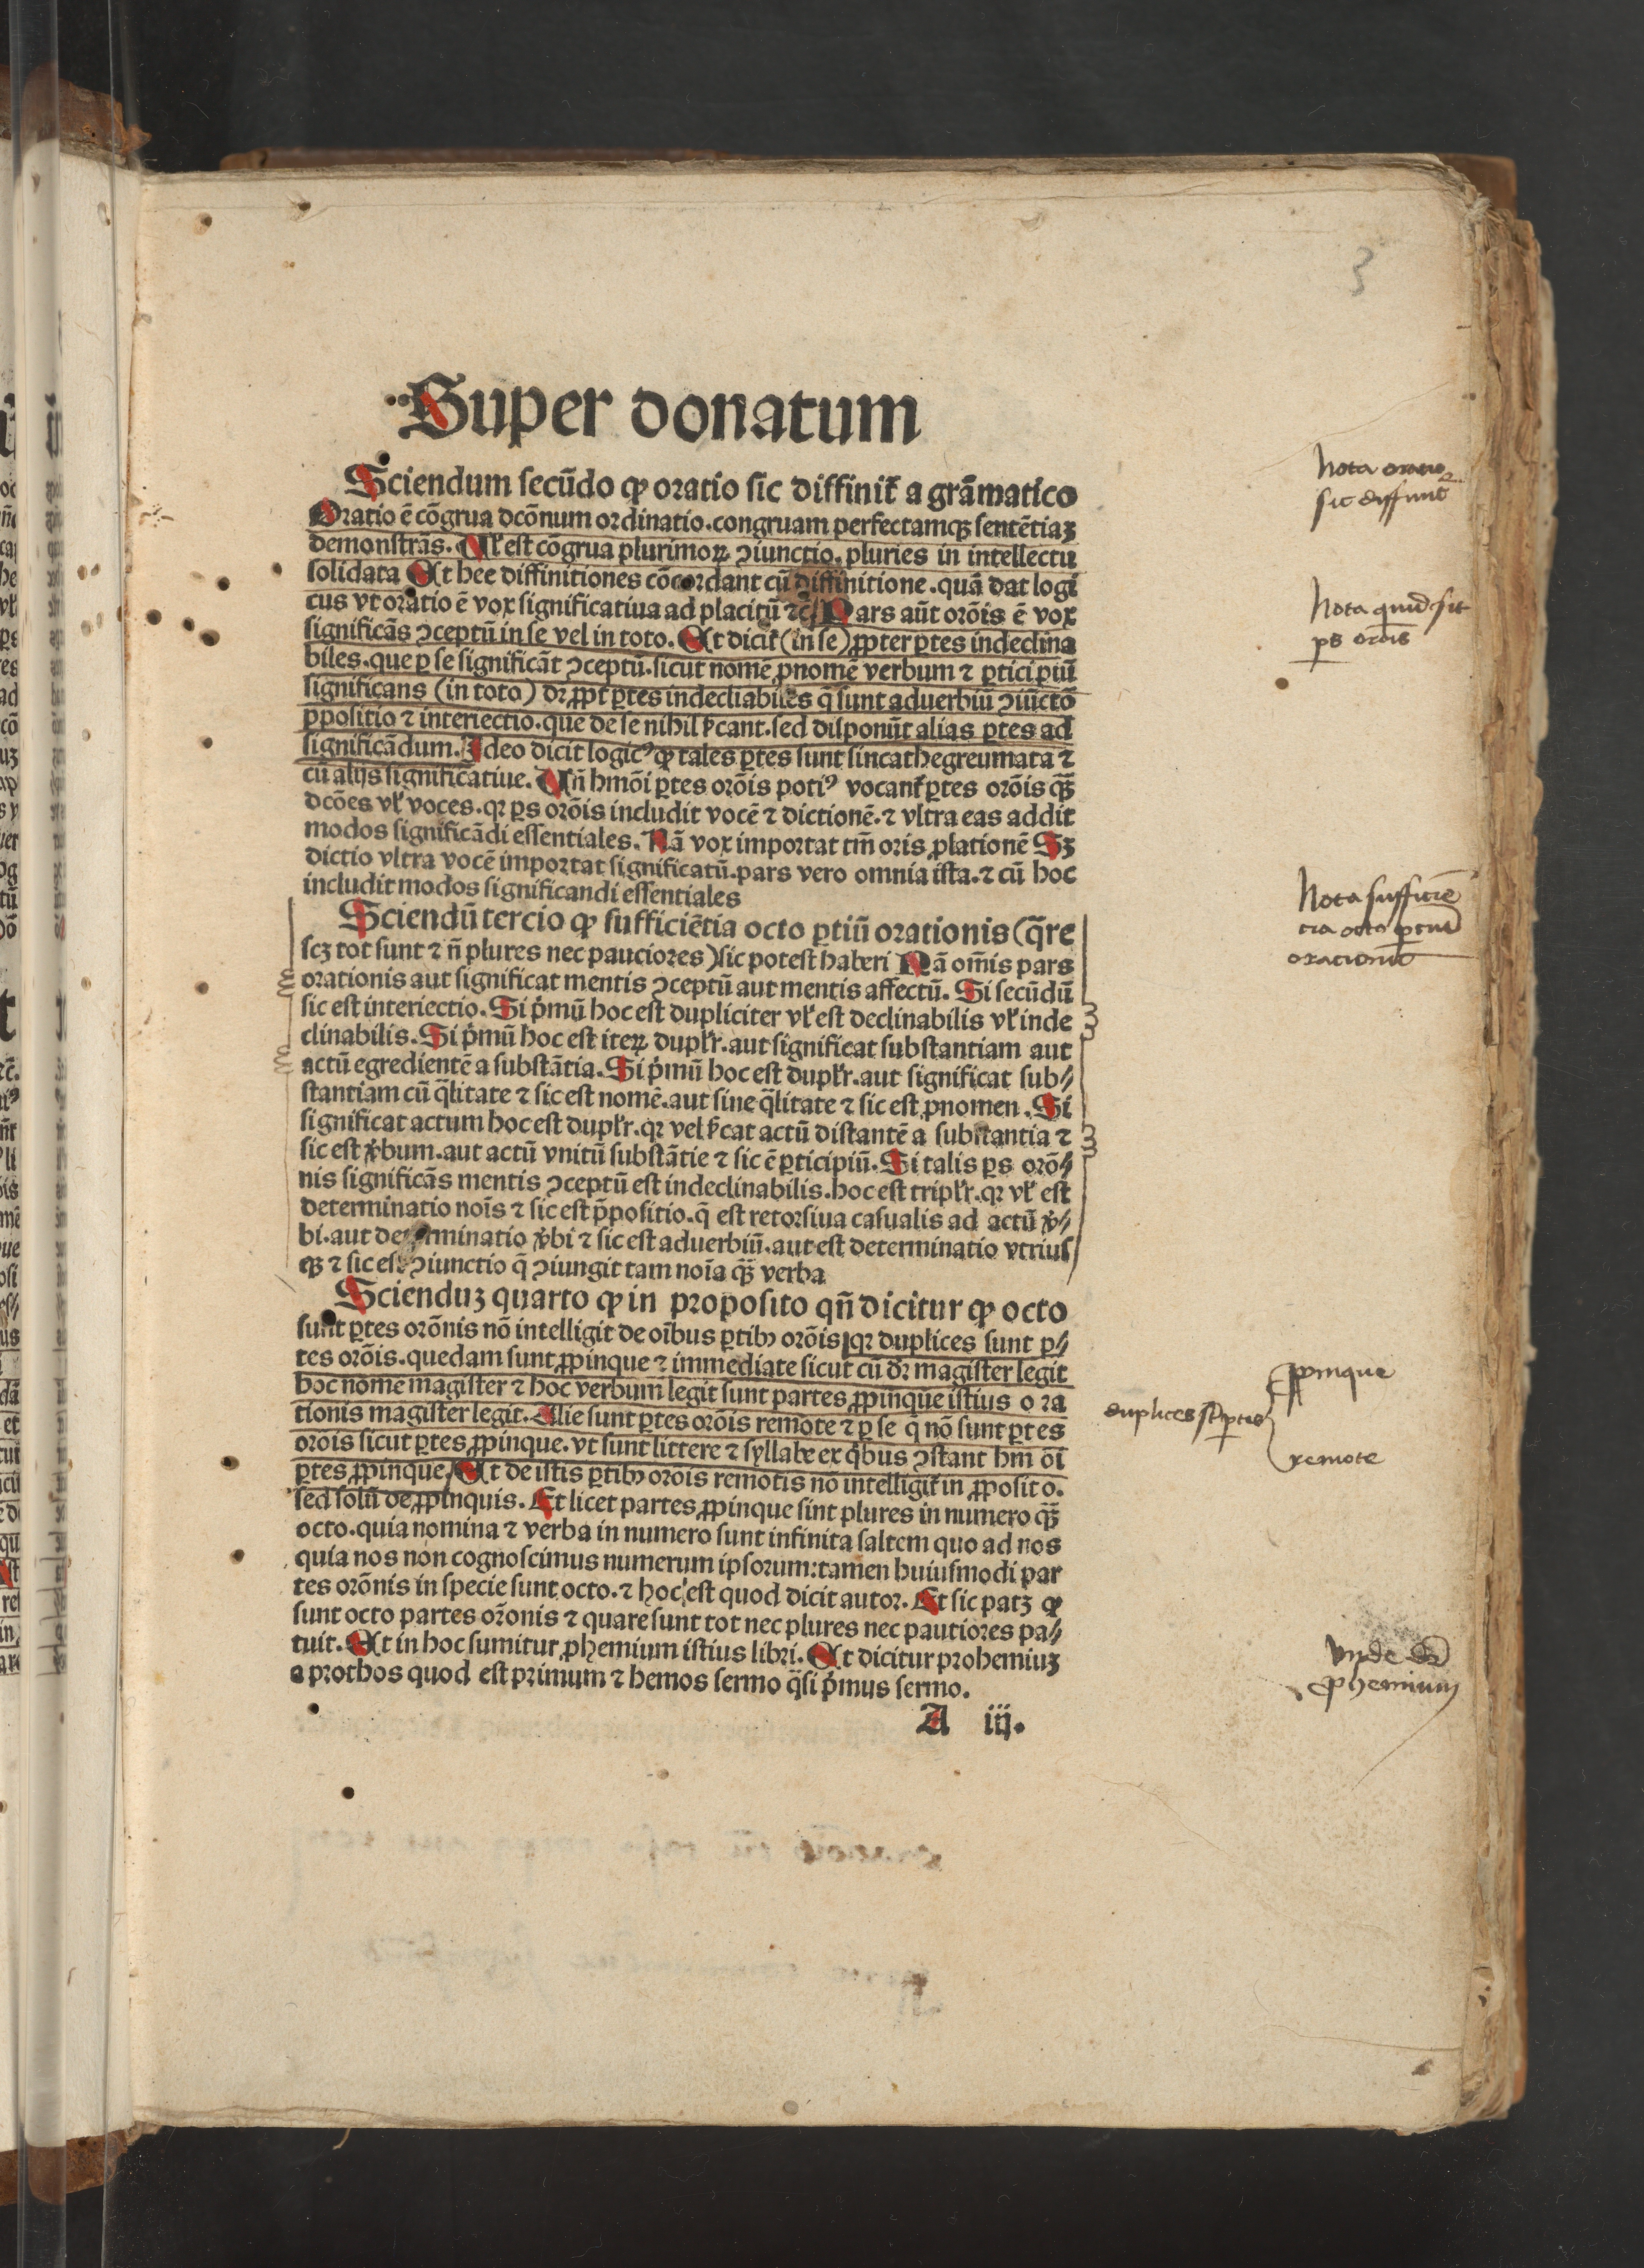 3
Super donatum
Sciendum secūdo ꝙ oratio sic diffinit̄ a grāmatico
Oratio ē cōgrua dcōnum ordinatio. congruam perfectamqꝫ sentētiaꝫ
demonstrās. Ul̄ est cōgrua plurimoꝝ ꝯiunctio. pluries in intellectu
solidata Et hee diffinitiones cōcordant cū diffinitione. quā dat logi
cus vt oratio ē vox significatiua ad placitū ⁊c̄ Pars aūt orōis ē vox
significās ꝯceptū in se vel in toto. Et dicit̄ (in se) ꝓpter ꝑtes indeclina
biles. que ꝑ se significāt ꝯceptū. sicut nomē ꝓnomē verbum ⁊ ꝑticipiū
significans (in toto) dr̄ ꝓpt̄ ꝑtes indecliabiles q̄ sunt aduerbiū ꝯiūctō
p̄positio ⁊ interiectio. que de se nihil s̄cant. sed disponūt alias ꝑtes ad
significādum. Ideo dicit logicꝰ ꝙ tales ꝑtes sunt sincathegreumata ⁊
cū alijs significātiue. Un̄ hmōi ꝑtes orōis potiꝰ vocant̄ ꝑtes orōis qꝫ̄
dcōes vl̄ voces. qꝛ ꝑs orōis includit vocē ⁊ dictionē. ⁊ vltra eas addit
modos significādi essentiales. Nā vox importat tm̄ oris ꝓlationē Sꝫ
dictio vltra vocē importat significatū. pars vero omnia ista. ⁊ cū hoc
includit modos significandi essentiales
Sciendū tercio ꝙ sufficiētia octo ꝑtiū orationis (q̄re
scꝫ tot sunt ⁊ n̄ plures nec pauciores) sic potest haberi Nā om̄is pars
orationis aut significat mentis ꝯceptū aut mentis affectū. Si secūdū
sic est interiectio. Si p̄mū hoc est dupliciter vl̄ est declinabilis vl̄ inde
clinabilis. Si p̄mū hoc est iteꝝ dupl̄r. aut significat substantiam aut
actū egredientē a substātia. Si p̄mū hoc est dupl̄r. aut significat sub⸗
stantiam cū q̄litate ⁊ sic est nomē. aut sine q̄litate ⁊ sic est ꝓnomen. Si
significat actum hoc est dupl̄r. qꝛ vel s̄cat actū distantē a substantia ⁊
sic est v̄bum. aut actū vnitū substātie ⁊ sic ē ꝑticipiū. Si talis ꝑs orō⸗
nis significās mentis ꝯceptū est indeclinabilis. hoc est tripl̄r. qꝛ vl̄ est
determinatio nois̄ ⁊ sic est p̄positio. q̄ est retorsiua casualis ad actū v̄⸗
bi. aut determinatio v̄bi ⁊ sic est aduerbiū. aut est determinatio vtrius
qꝫ ⁊ sic est ꝯiunctio q̄ ꝯiungit tam noīa qꝫ̄ verba
Scienduꝫ quarto ꝙ in proposito qn̄ dicitur ꝙ octo
sunt ꝑtes orōnis nō intelligit de oībus ꝑtibꝫ orōis qꝛ duplices sunt ꝑ⸗
tes orōis. quedam sunt ꝓpinque ⁊ immediate sicut cū dr̄ magister legit
hoc nomē magister ⁊ hoc verbum legit sunt partes ꝓpinque istius ora
tionis magister legit. Alie sunt ꝑtes orōis remote ⁊ ꝑ se q̄ nō sunt ꝑtes
orōis sicut ꝑtes ꝓpinque. vt sunt littere ⁊ syllabe ex q̄bus ꝯstant hm̄ōi
ꝑtes ꝓpinque. Et de istis ꝑtibꝫ orōis remotis nō intelligit̄ in ꝓposito.
sed solū de ꝓpinquis. Et licet partes ꝓpinque sint plures in numero qꝫ̄
octo. quia nomina ⁊ verba in numero sunt infinita saltem quo ad nos
quia nos non cognoscimus numerum ipsorum: tamen huiusmodi par
tes orōnis in specie sunt octo. ⁊ hoc est quod dicit autor. Et sic patꝫ ꝙ
sunt octo partes or̄onis ⁊ quare sunt tot nec plures nec pautiores pa⸗
tuit. Et in hoc sumitur ꝓhemium istius libri. Et dicitur prohemiuꝫ
a prothos quod est primum ⁊ hemos sermo q̄si p̄mus sermo.
A iij.
Nota oratio
sic diffinit̄
Nota quid sit
ꝑs orōis
Nota sufficiē
tia octo ꝑtiū
orationis
duplices st̄ ꝑtes
ꝓpinque
remote
vnde dr̄
ꝓhemium